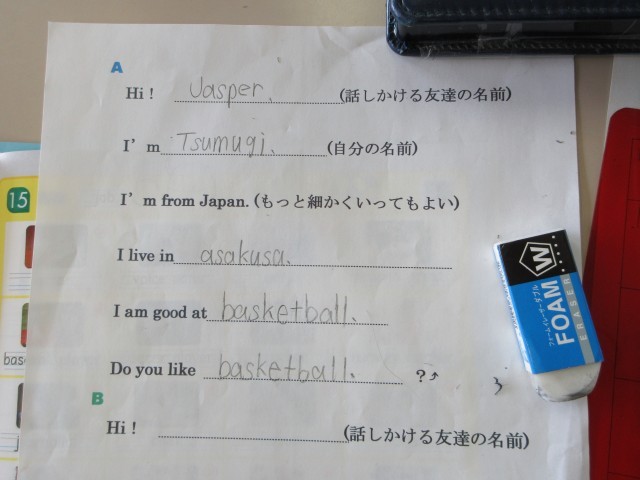 A
Hi! Jasper、(話しかける友達の名前)
I'm Tsumugi、(自分の名前)
I'm from Japan. (もっと細かくいってもよい)
I live in asakusa、
I am good at basketball、
Do you like basketball、?
B
Hi! (話しかける友達の名前)
15
bas
W
FOAM
ERASER